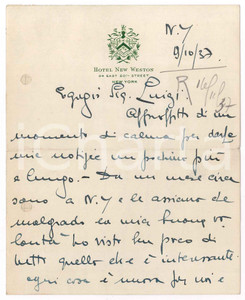 N.Y
9/10/37
HOTEL NEW WESTON
34 EAST 50TH STREET
NEW YORK
R 14/11/37
Egregio Sig. Luigi.
Approfitto di un
momento di calma per darle
mie notizie un pochino più
a lungo. - Da un mese circa
sono a N.Y e le assicuro che
malgrado la mia buona vo-
lontà ho visto ben poco di
tutto quello che è interessante
ogni cosa è nuova per noi e